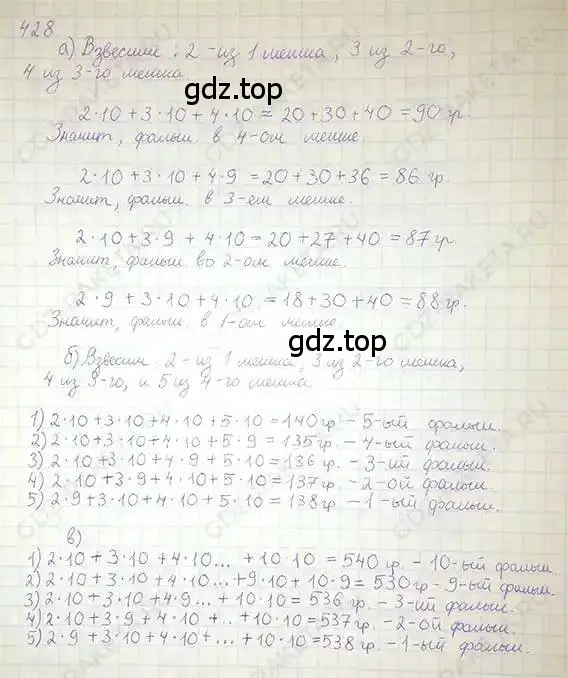 428
а) Взвесим: 2 - из 1 мешка, 3 из 2-го,
4 из 3-го мешка
gdz.top
2·10 + 3·10 + 4·10 = 20 + 30 + 40 = 90 гр.
Значит, фальш. в 4-ом мешке.
2·10 + 3·10 + 4·9 = 20 + 30 + 36 = 86 гр.
Значит, фальш. в 3-ем мешке.
2·10 + 3·9 + 4·10 = 20 + 27 + 40 = 87 гр.
Значит, фальш. во 2-ом мешке.
2·9 + 3·10 + 4·10 = 18 + 30 + 40 = 88 гр.
Значит, фальш. в 1-ом мешке.
gdz.top
б) Взвесим: 2 - из 1 мешка, 3 из 2-го мешка,
4 из 3-го, и 5 из 4-го мешка.
1) 2·10 + 3·10 + 4·10 + 5·10 = 140 гр. - 5-ый фальш.
2) 2·10 + 3·10 + 4·10 + 5·9 = 135 гр. - 4-ый фальш.
3) 2·10 + 3·10 + 4·9 + 5·10 = 136 гр. - 3-ий фальш.
4) 2·10 + 3·9 + 4·10 + 5·10 = 137 гр. - 2-ой фальш.
5) 2·9 + 3·10 + 4·10 + 5·10 = 138 гр. - 1-ый фальш.
в)
1) 2·10 + 3·10 + 4·10... + 10·10 = 540 гр. - 10-ый фальш.
2) 2·10 + 3·10 + 4·10... + 9·10 + 10·9 = 530 гр - 9-ый фальш.
3) 2·10 + 3·10 + 4·9... + 10·10 = 536 гр. - 3-ий фальш.
4) 2·10 + 3·9 + 4·10 + ... + 10·10 = 537 гр. - 2-ой фальш.
5) 2·9 + 3·10 + 4·10 + ... + 10·10 = 538 гр. - 1-ый фальш.